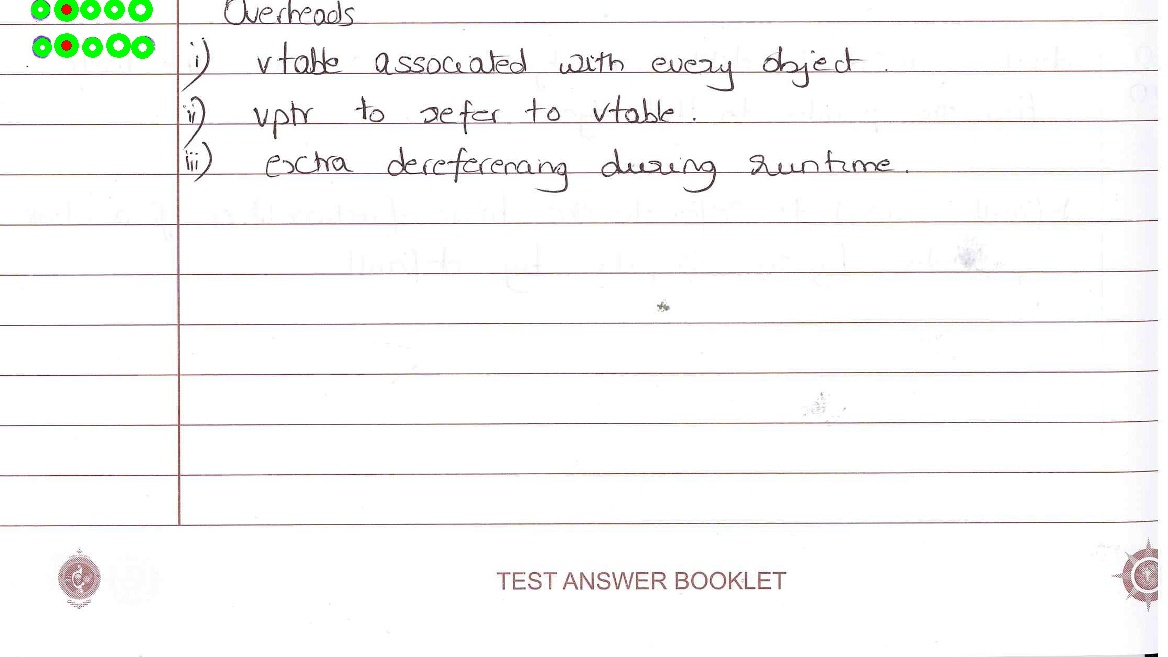 Overheads
i) vtable associated with every object.
ii) vptr to refer to vtable.
iii) extra dereferencing during runtime.
TEST ANSWER BOOKLET